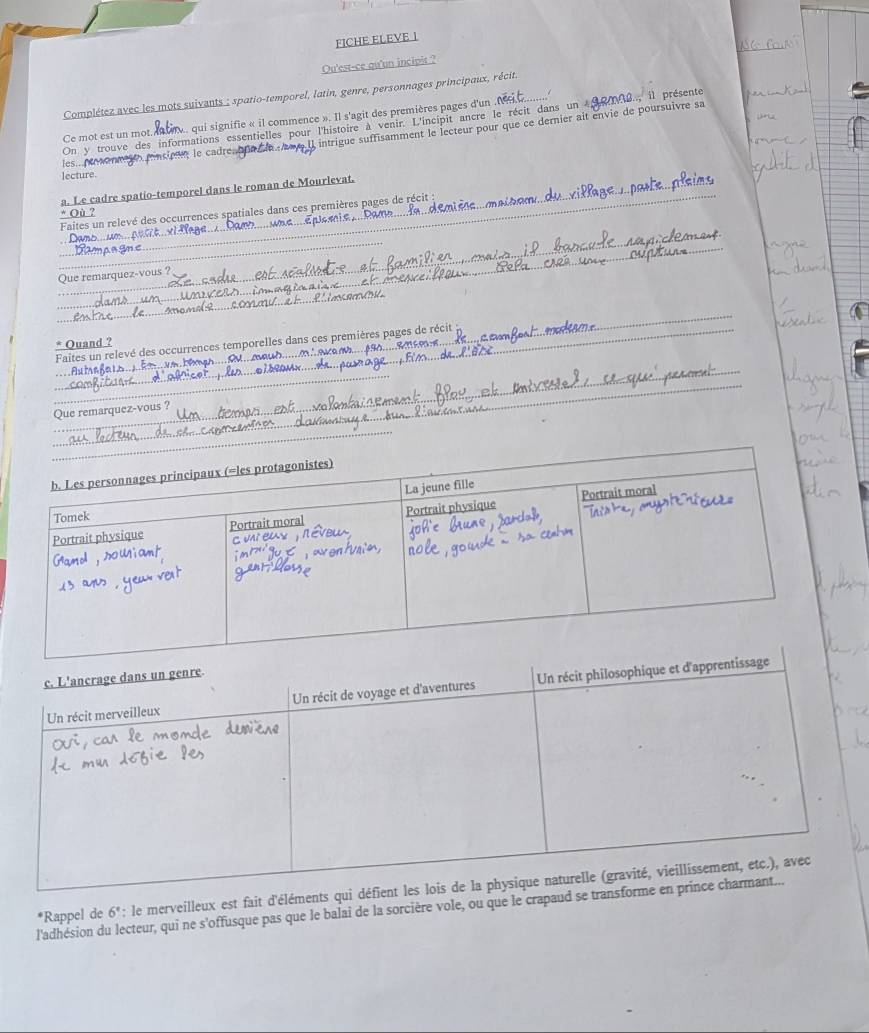 FICHE ELEVE 1
Qu'est-ce qu'un incipit ?
Complétez avec les mots suivants : spatio-temporel, latin, genre, personnages principaux, récit.
Ce mot est un mot latin qui signifie « il commence ». Il s'agit des premières pages d'un récit
On y trouve des informations essentielles pour l'histoire à venir. L'incipit ancre le récit dans un genre, il présente
les personnages principaux le cadre spatio-temp Il intrigue suffisamment le lecteur pour que ce dernier ait envie de poursuivre sa
lecture.
a. Le cadre spatio-temporel dans le roman de Mourlevat.
* Où ?
Faites un relevé des occurrences spatiales dans ces premières pages de récit :
Dans un petit village, Dans une épicerie, Dans la dernière maison du village, paste pleine
Que remarquez-vous ? Le cadre est réaliste et familier, mais il bascule rapidement
dans un univers imaginaire et merveilleux Cela crée une rupture
entre le monde connu et l'inconnu.
* Quand ?
Faites un relevé des occurrences temporelles dans ces premières pages de récit :
Autrefois, En un temps où nous n'avons pas encore le comfort moderne
confiture d'abricot, les oiseaux de passage, Fin de l'été
Que remarquez-vous ? Un temps est volontairement flou et universel, ce qui permet
au lecteur de se concentrer davantage sur l'aventure
b. Les personnages principaux (=les protagonistes)
Tomek
La jeune fille
Portrait physique
Portrait moral
Portrait physique
Portrait moral
Grand, souriant
13 ans, yeux vert
curieux, rêveur,
intrigué, aventurier,
gentillesse
jolie brune, sandale,
robe, gourde à sa
Triste, mystérieuse
c. L'ancrage dans un genre.
Un récit merveilleux
Un récit de voyage et d'aventures
Un récit philosophique et d'apprentissage
oui, car le monde derrière
le mur défie les
*Rappel de 6°: le merveilleux est fait d'éléments qui défient les lois de la physique naturelle (gravité, vieillissement, etc.), avec
l'adhésion du lecteur, qui ne s'offusque pas que le balai de la sorcière vole, ou que le crapaud se transforme en prince charmant...